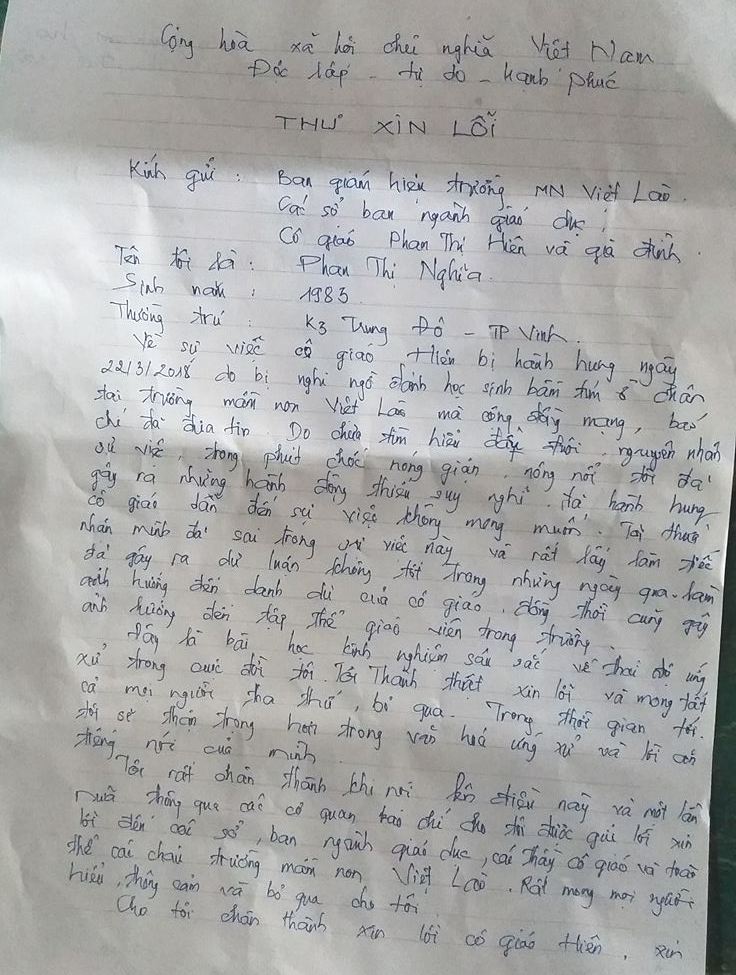 Cộng hòa xã hội chủ nghĩa Việt Nam
Độc lập - tự do - Hạnh phúc
THƯ XIN LỖI
Kính gửi : Ban giám hiệu trường MN Việt Lào.
Các sở ban ngành giáo dục;
Cô giáo Phan Thị Hiền và gia đình.
Tên tôi là : Phan Thị Nghĩa.
Sinh năm : 1983.
Thường trú : K3 Trung Đô - TP Vinh.
Về sự việc cô giáo Hiền bị hành hung ngày
22/3/2018 do bị nghi ngờ đánh học sinh bầm tím ở chân
tại trường mầm non Việt Lào mà cộng đồng mạng, báo
chí đã đưa tin. Do chưa tìm hiểu đầy đuôi, nguyên nhân
sự việc, trong phút chốc nóng giận, nóng nổi tôi đã
gây ra những hành động thiếu suy nghĩ, đã hành hung
cô giáo dẫn đến sự việc không mong muốn. Tôi thấy
nhân mình đã sai trong sự việc này và rất lấy làm tiếc
đã gây ra dư luận không tốt trong những ngày qua. Làm
ảnh hưởng đến danh dự của cô giáo, đồng thời cũng gây
ảnh hưởng đến tập thể giáo viên trong trường.
Đây là bài học kinh nghiệm sâu sắc về thái độ ứng
xử trong cuộc đời tôi. Tôi Thành thật xin lỗi và mong tất
cả mọi người tha thứ, bỏ qua. Trong thời gian tới.
tôi sẽ thận trọng hơn trong văn hoá ứng xử và lời ăn
tiếng nói của mình.
Tôi rất chân thành khi nói lên điều này và một lần
nữa thông qua các cơ quan báo chí cho tôi được gửi lời xin
lỗi đến các sở, ban ngành giáo dục, các thầy cô giáo và toàn
thể các cháu trường mầm non Việt Lào. Rất mong mọi người
hiểu, thông cảm và bỏ qua cho tôi.
Cho tôi chân thành xin lỗi cô giáo Hiền, xin